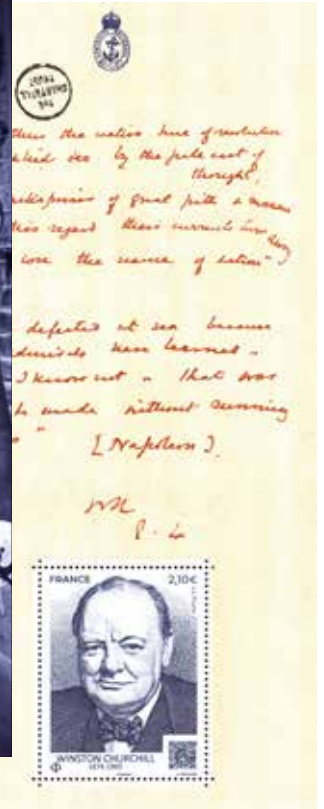 THE CHARTWELL TRUST
thus the native hue of resolution
by the pale cast of
thought,
of great pith & moment
this regard their currents turn awry
lose the name of action"
defeated at sea because
admirals have learned
I know not . That war
be made without running
[Napoleon].
FRANCE 2,10€
WINSTON CHURCHILL
1874-1965